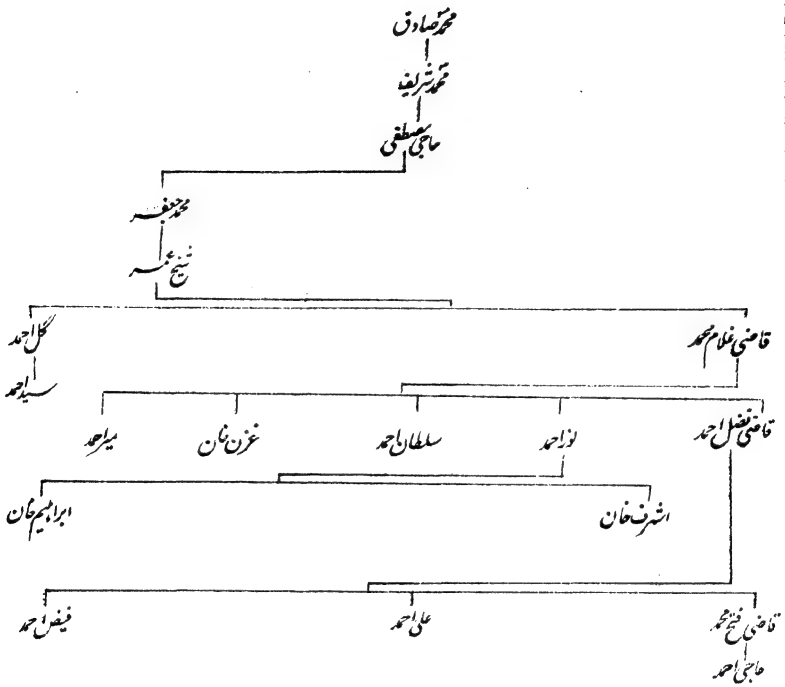 محمد صادق
محمد شریف
حاجی مصطفی
محمد جعفر
شیخ عمر
قاضی غلام محمد گل احمد
سید احمد
قاضی فضل احمد نور احمد سلطان احمد غزن خان میر احمد
اشرف خان ابراہیم خان
قاضی فتح محمد علی احمد فیض احمد
حاجی احمد